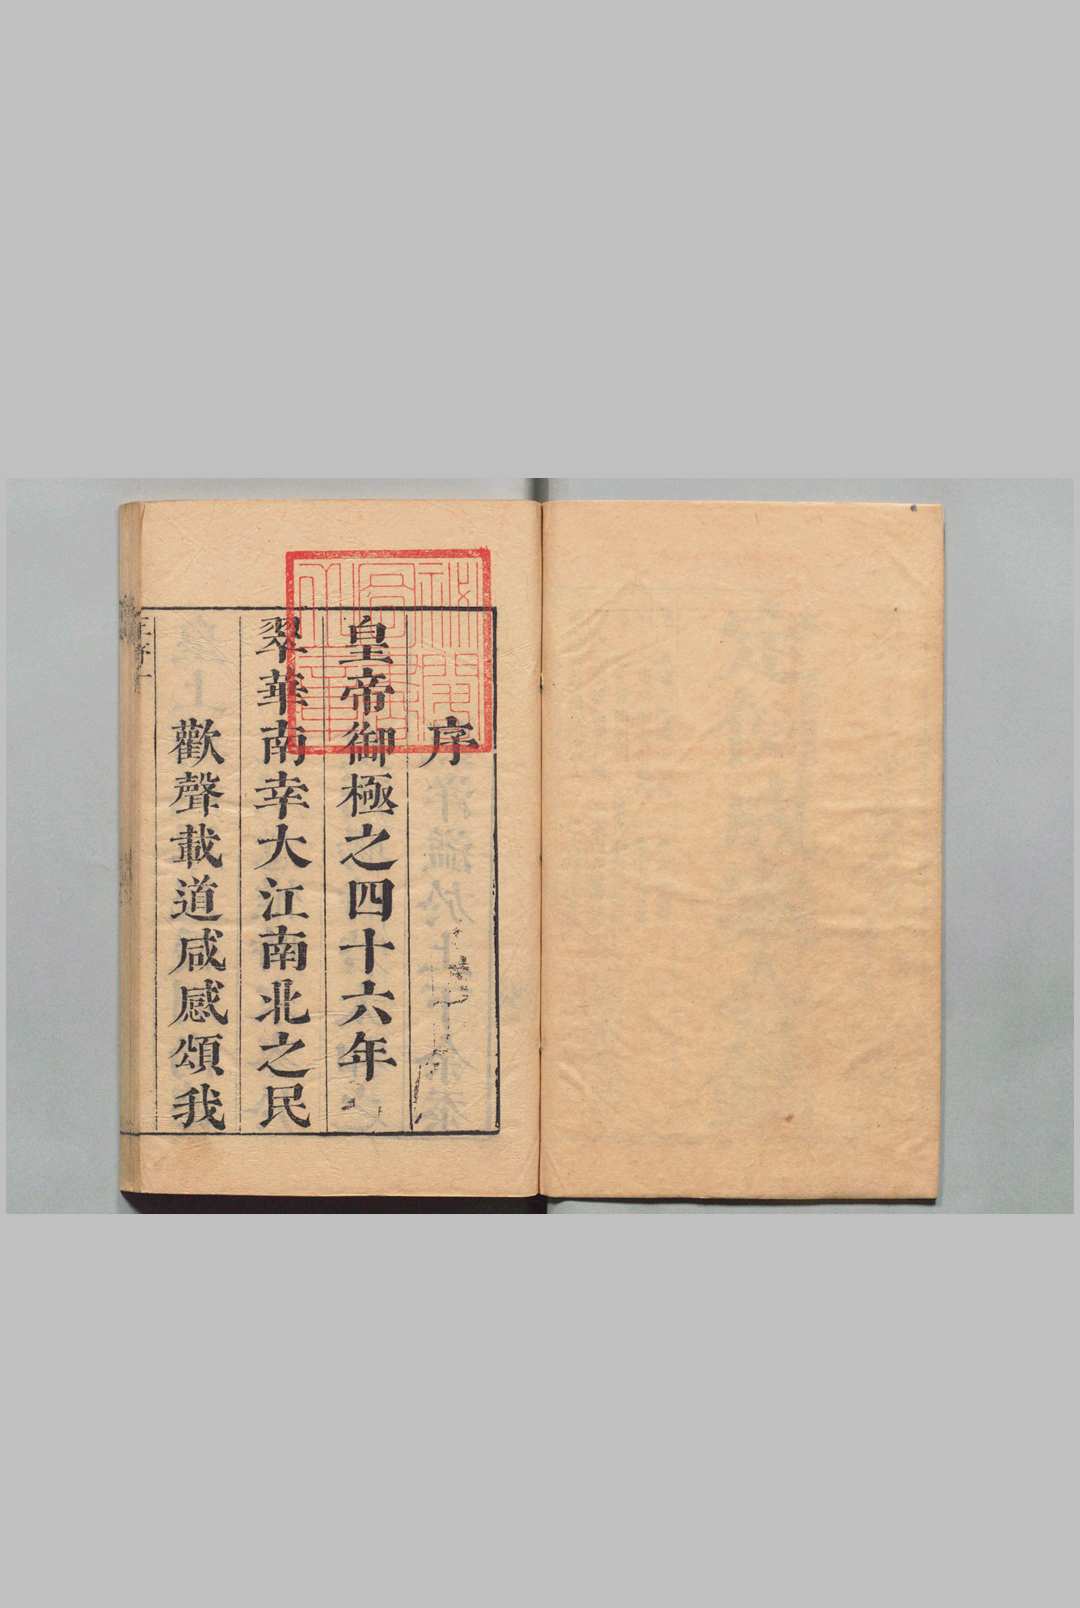 序
皇帝御極之四十六年
翠華南幸大江南北之民
歡聲載道咸感頌我